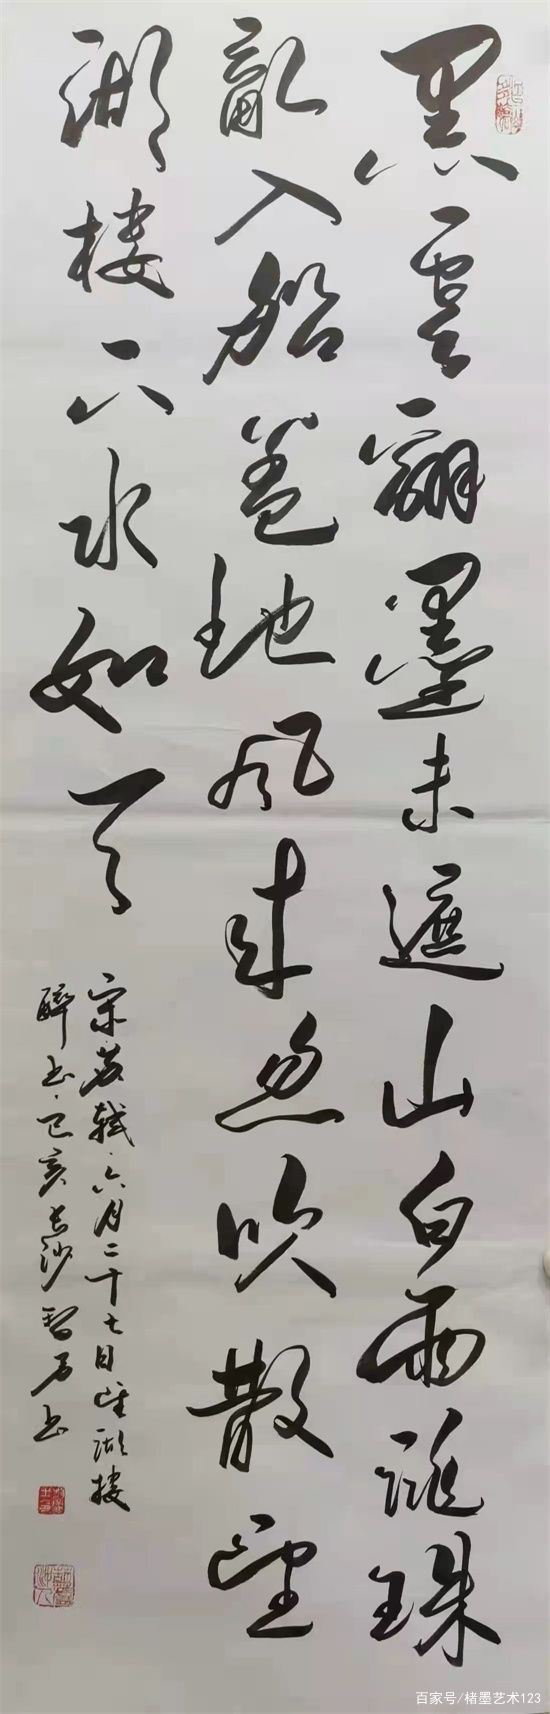 黑云翻墨未遮山白雨跳珠
乱入船卷地风来忽吹散望
湖楼下水如天
宋·苏轼·六月二十七日望湖楼
醉书·己亥长沙智方书
百家号/楮墨艺术123